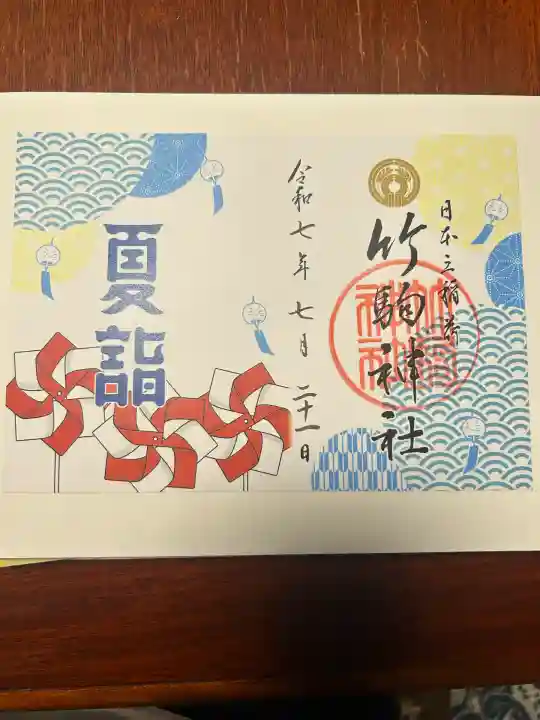 日本三稲荷
竹駒神社
令和七年七月二十一日
夏詣